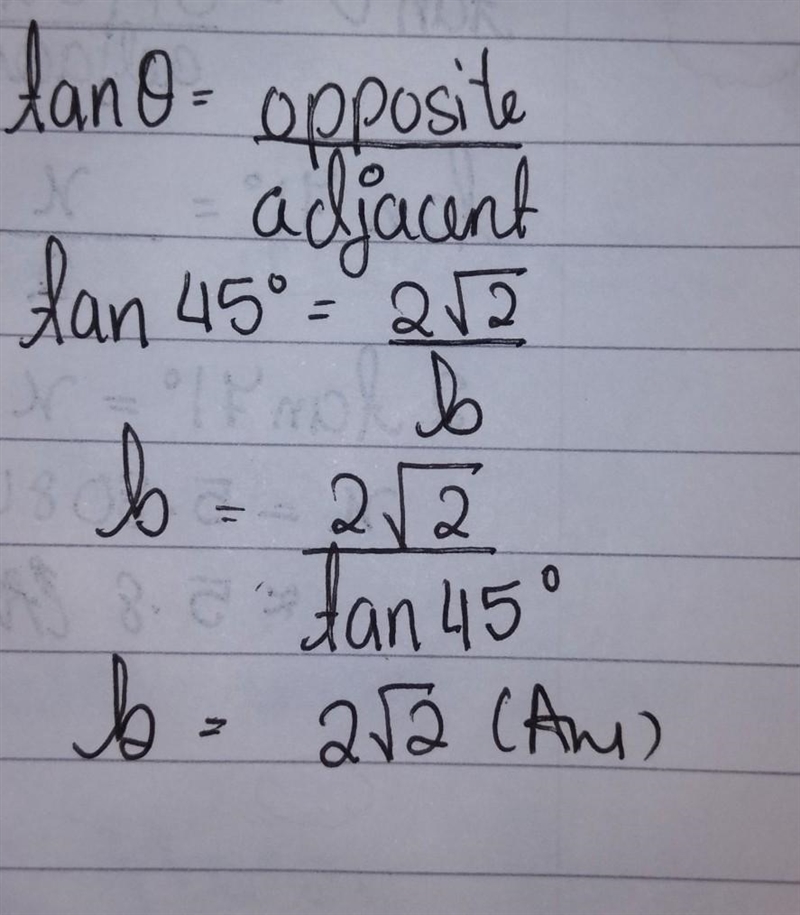 tanθ = opposite
adjacent
tan 45° = 2√2
b
b = 2√2
tan 45°
b = 2√2 (Ans)